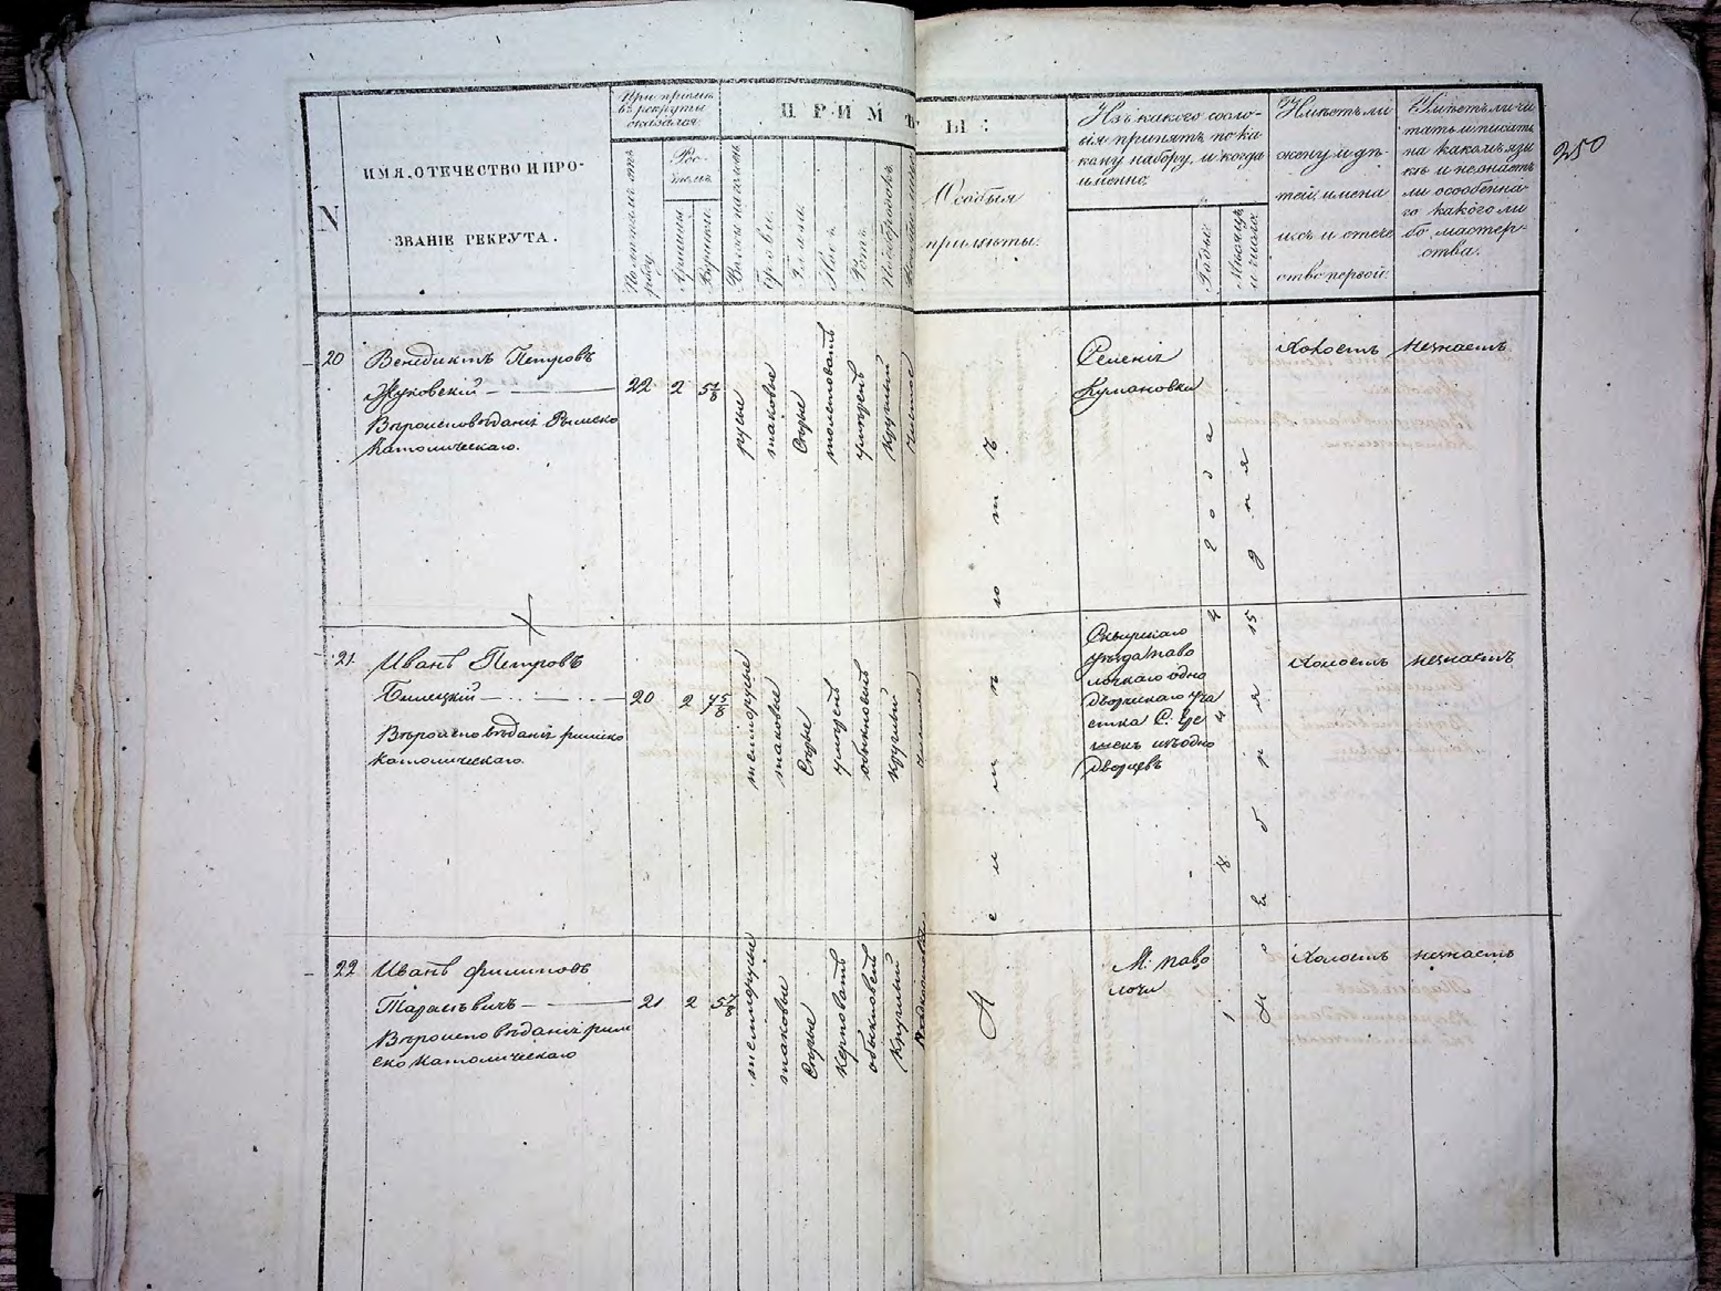 250
N
ИМЯ, ОТЕЧЕСТВО И ПРО-
ЗВАНІЕ РЕКРУТА.
При пріемѣ
въ рекруты
оказался:
По летамъ отъ
роду
Рос-
томъ
Аршины
Вершки
ПРИМѢТЫ:
Волосы на головѣ
брови
Глаза
Носъ
Ротъ
Подбородокъ
Особыя
примѣты.
Изъ какого сосло-
вія принятъ по ка-
кому набору, и когда
именно:
Годы:
Мѣсяцъ
и число
Имѣетъ ли
жену и дѣ-
тей, имена
ихъ и отече
ство первой:
Умѣетъ ли чи
тать и писать
на какомъ язы
кѣ и незнаетъ
ли особенна-
го какого ли
бо мастер-
ства.
20
Венедиктъ Петровъ
Жуковскій
Вѣроисповѣданія Римско
Католическаго.
22 2 5⅞
русые
таковые
Сѣрые
толстоватъ
умѣренъ
круглый
чистое
Селенія
Кумановки
Холостъ
Незнаетъ
21.
Иванъ Петровъ
Билецкій
Вѣроисповѣданія римско
Католическаго.
20 2 4⅝
темнорусые
таковые
Сѣрые
умѣренъ
обыкновенъ
круглый
Сквирскаго
уѣзда паво
лочкаго одно
дворческаго уча
стка С.
изъ одно
дворцевъ
Холостъ
незнаетъ
22
Иванъ Филиповъ
Тарасѣвичъ
Вѣроисповѣданія рим
ско Католическаго
21 2 5⅞
темнорусые
таковые
Сѣрые
керповатъ
обыкновенъ
Круглый
М. Паво
лочи
Холостъ
незнаетъ
Неимѣютъ
1844 года
Ноября 15 дня